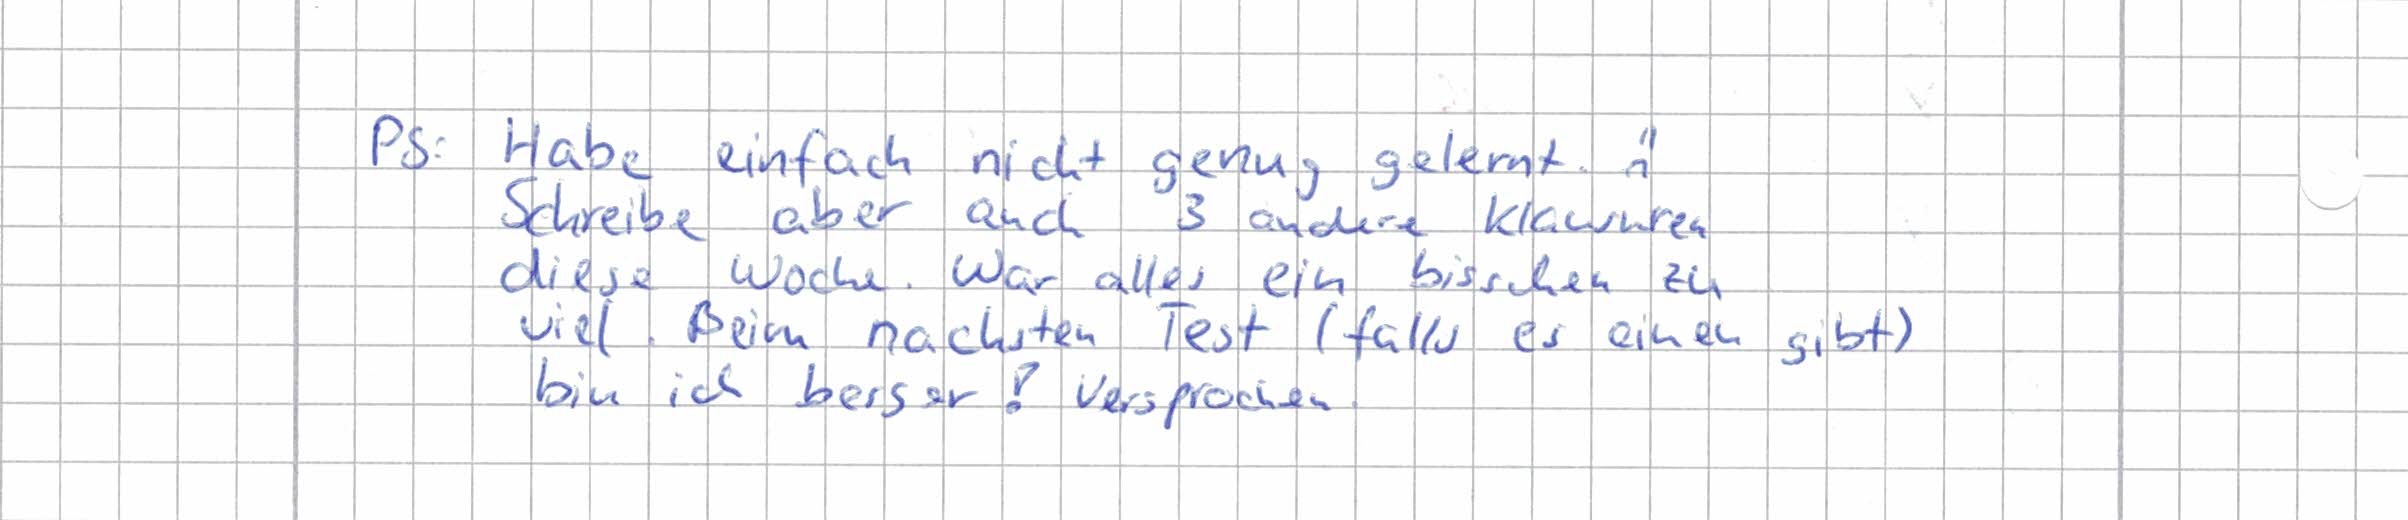 PS: Habe einfach nicht genug gelernt. :(
Schreibe aber auch 3 andere Klausuren
diese Woche. War alles ein bisschen zu
viel. Beim nächsten Test (falls es einen gibt)
bin ich besser! Versprochen.